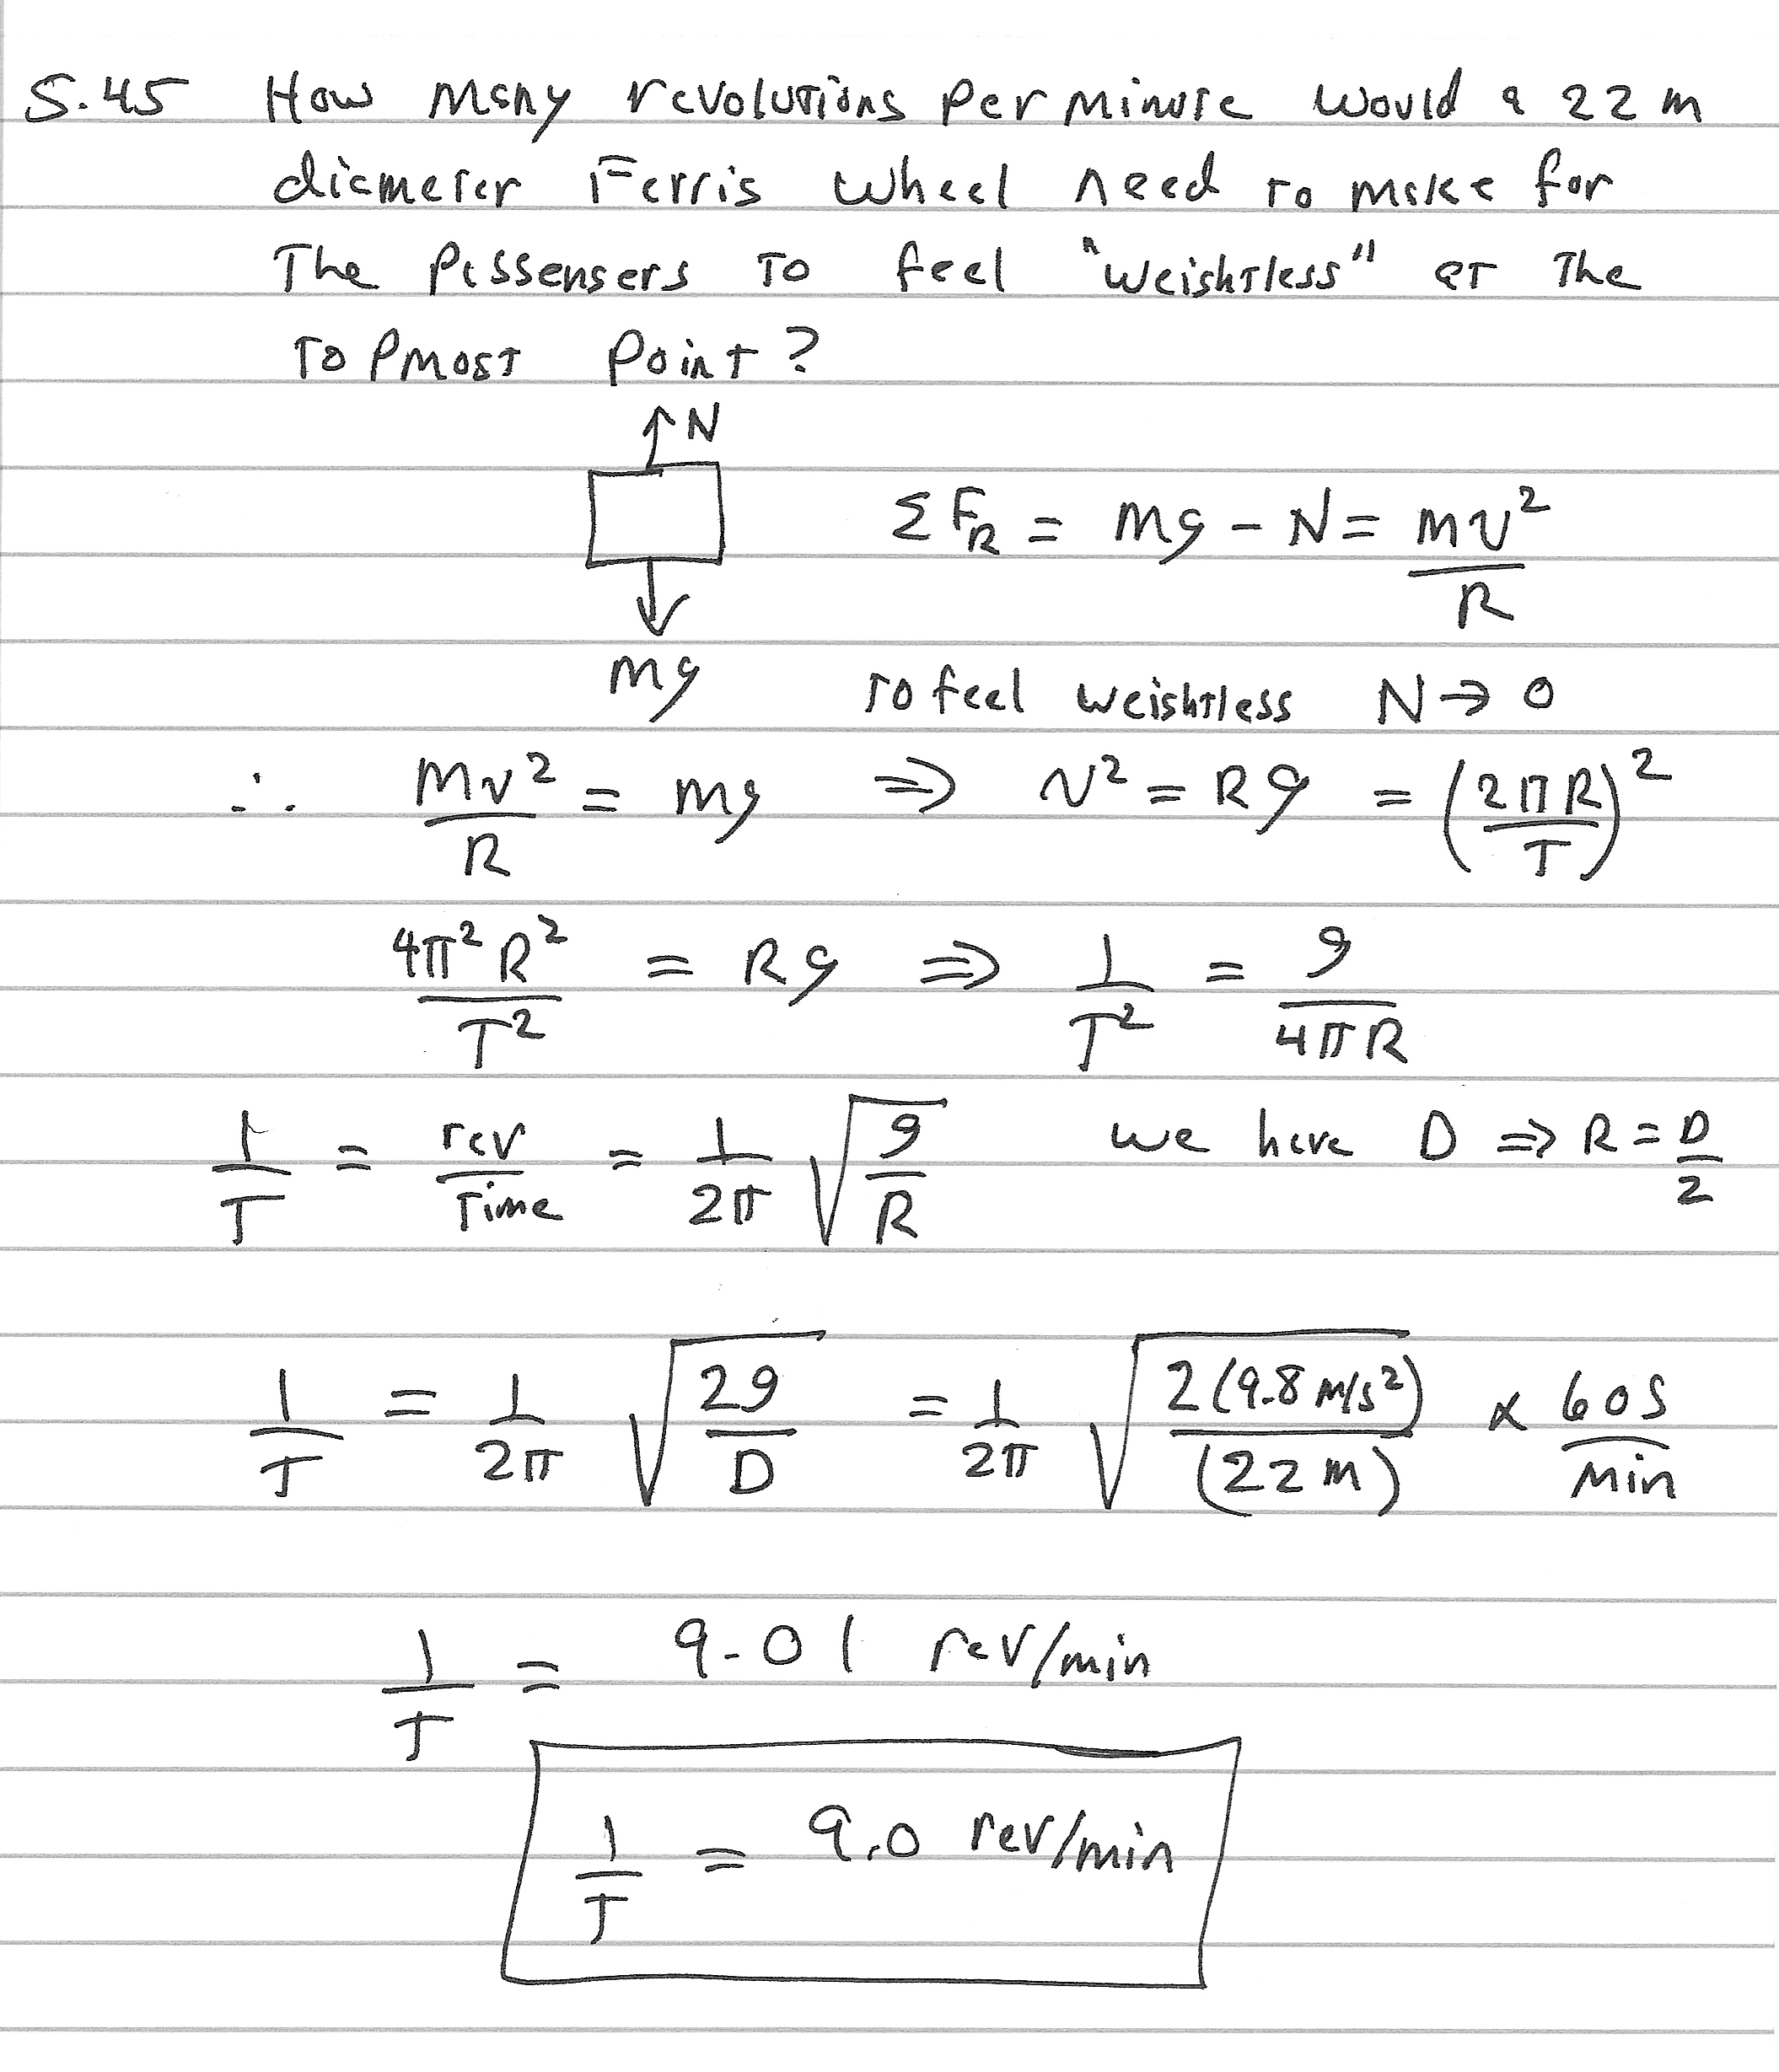 5.45 How many revolutions per minute would a 22 m
diameter Ferris wheel need to make for
The passengers to feel "weightless" at the
topmost point?
↑N
ΣF_R = mg - N = mv²/R
mg
To feel weightless N → 0
∴ mv²/R = mg ⇒ v² = Rg = (2πR/T)²
4π²R²/T² = Rg ⇒ 1/T² = g/4πR
1/T = rev/Time = 1/2π √(g/R) we have D ⇒ R = D/2
1/T = 1/2π √(2g/D) = 1/2π √(2(9.8 m/s²)/(22 m)) × 60s/min
1/T = 9.01 rev/min
1/T = 9.0 rev/min